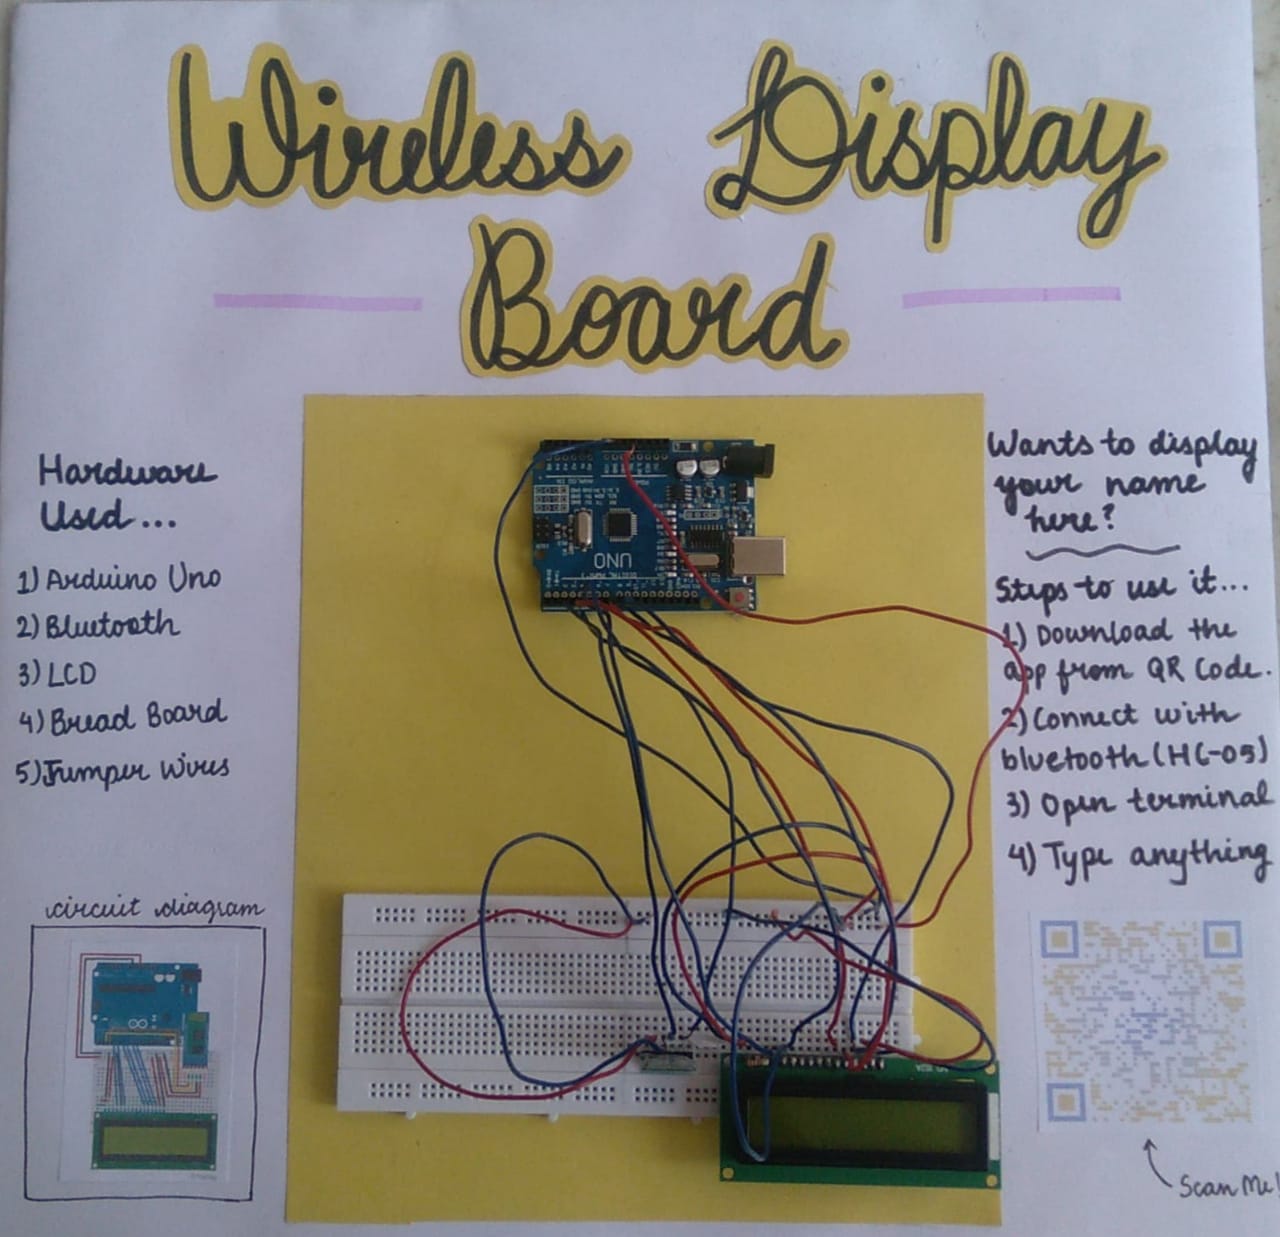 Wireless Display
Board
Hardware
Used...
1) Arduino Uno
2) Bluetooth
3) LCD
4) Bread Board
5) Jumper Wires
circuit diagram
UNO
Wants to display
your name
here?
Steps to use it...
1) Download the
app from QR Code.
2) Connect with
bluetooth (HC-05)
3) Open terminal
4) Type anything
Scan Me!